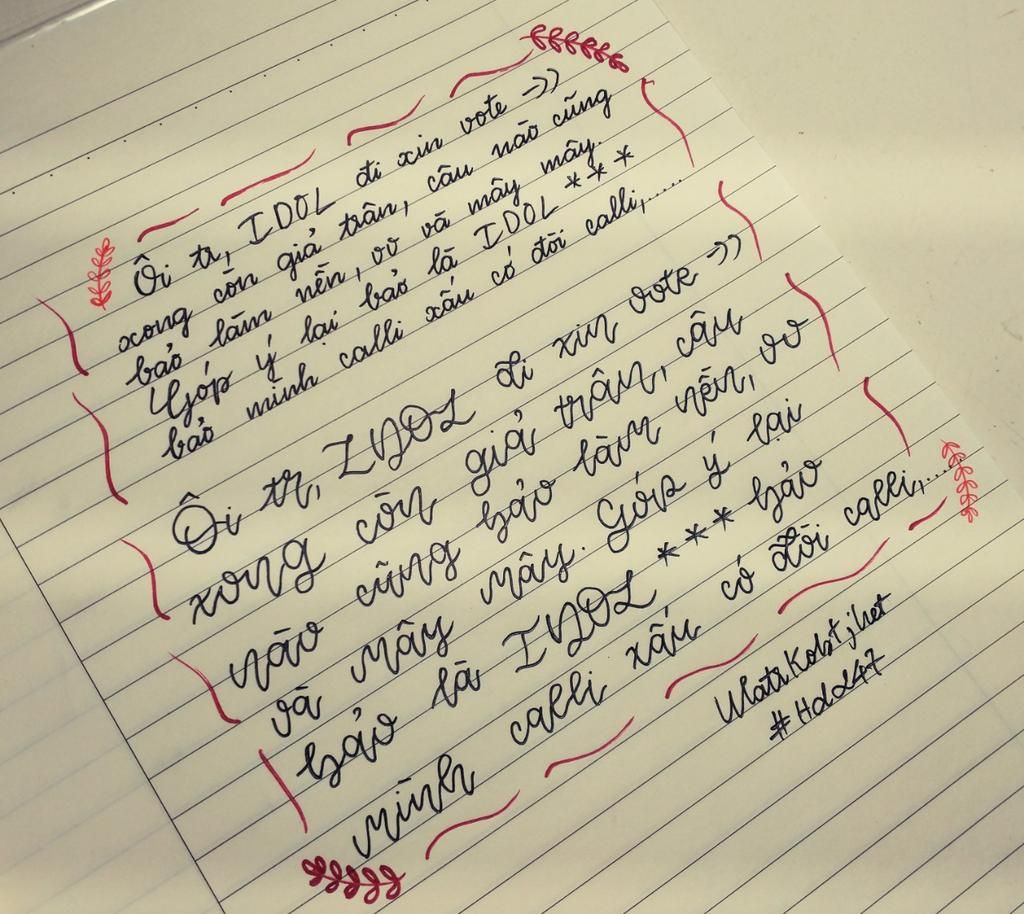 Ôi tr, IDOL đi xin vote =))
xong còn giả trân, câu nào cũng
bảo làm nền, vờ và mây mây.
Góp ý lại bảo là IDOL ***
bảo mình calli xấu có đòi calli,......
Ôi tr, IDOL đi xin vote =))
xong còn giả trân, câu
nào cũng bảo làm nền, vơ
và mây mây. Góp ý lại
bảo là IDOL *** bảo
mình calli xấu có đòi calli,...